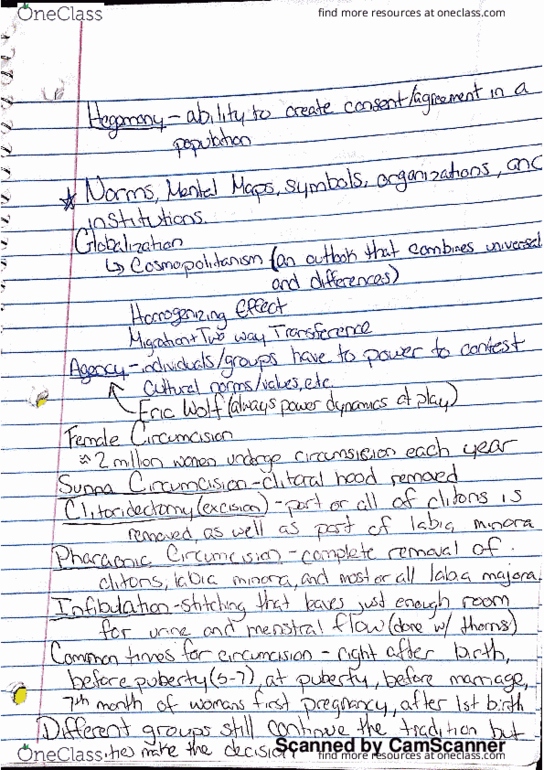 OneClass
find more resources at oneclass.com
Hegemony - ability to create consent/agreement in a
population
Norms, Mental Maps, symbols, organizations, and
institutions.
Globalization
↳ Cosmopolitanism (an outlook that combines universal
and differences)
Homogenizing Effect
Migration + Two way Transference
Agency - individuals/groups have to power to contest
cultural norms/values, etc
Eric Wolf (always power dynamics at play)
Female Circumcision
≈ 2 million women undergo circumsision each year
Sunna Circumcision - clitoral hood removed
Clitoridectomy (excision) - part or all of clitoris is
removed as well as part of labia minora
Pharaonic Circumcision - complete removal of
clitoris, labia minora, and most or all labia majora
Infibulation - stitching that leaves just enough room
for urine and menstral flow (done w/ thorns)
Common times for circumcision - right after birth,
before puberty (5-7), at puberty, before marriage,
7th month of womans first pregnancy, after 1st birth
Different groups still continue the tradition but
make the decision
OneClass
Scanned by CamScanner
find more resources at oneclass.com